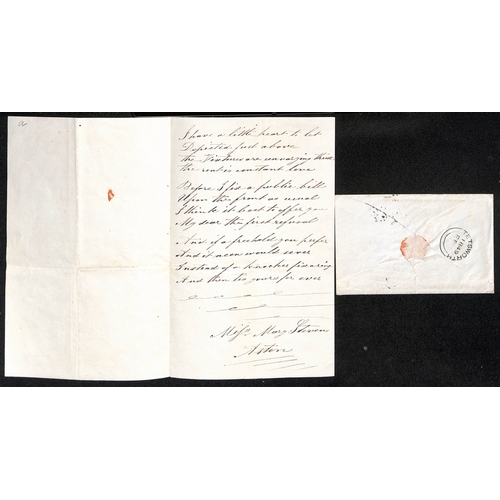 I have a little heart to let
Depicted just above
the Fixtures are unvarying
the rent is constant love
Before I fix a public bill
Upon the front as usual
I think it best to offer you
My dear the first refusal
And if a freehold you prefer
And it noon would sever
Instead of a knocker
And then tis yours for ever
Miſs. Mary Steven
Aston
TETSWORTH
FE
1849